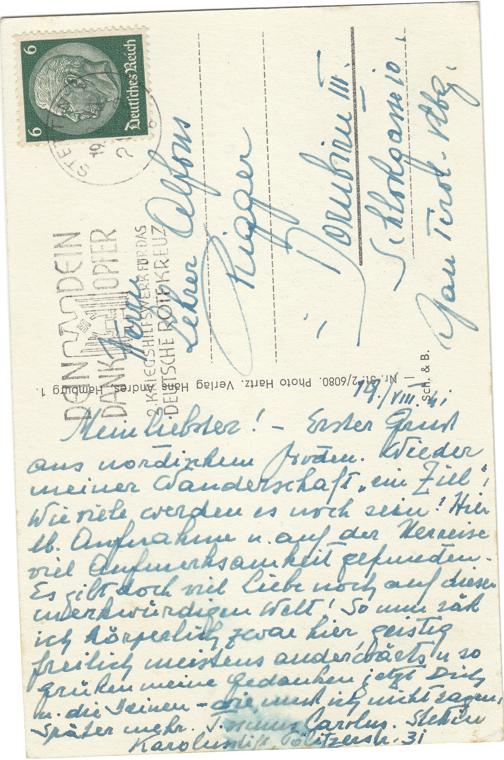 6
6
Deutsches Reich
STETTIN
DEIN
DANK
OPFER
2. KRIEGSHILFSWERK FÜR DAS
DEUTSCHE ROTE KREUZ
Herrn
Lehrer Alfons
Rigger
Dornbirn III.
Schloßgasse 10.
Gau Tirol-Vbg.
Nr. 31/2/6080. Photo Hartz. Verlag Hans Andres, Hamburg 1.
Sch. & B.
19/VIII.41
Mein liebster! – Erster Gruß
aus nordischem Boden. Wieder
meiner Wanderschaft „ein Ziel“!
Wie viele werden es noch sein! Hier
lb. Aufnahme u. auf der Herreise
viel Aufmerksamkeit gefunden.
Es gibt doch viel Liebe noch auf dieser
merkwürdigen Welt! So nun
ich körperlich zwar hier, geistig
freilich meistens anderwärts u so
grüßen meine Gedanken jetzt Dich
u. die Deinen – die muß ich nicht sagen,
Später mehr. Carolus. Stettin
Karolusstift. Pölitzerstr. 31